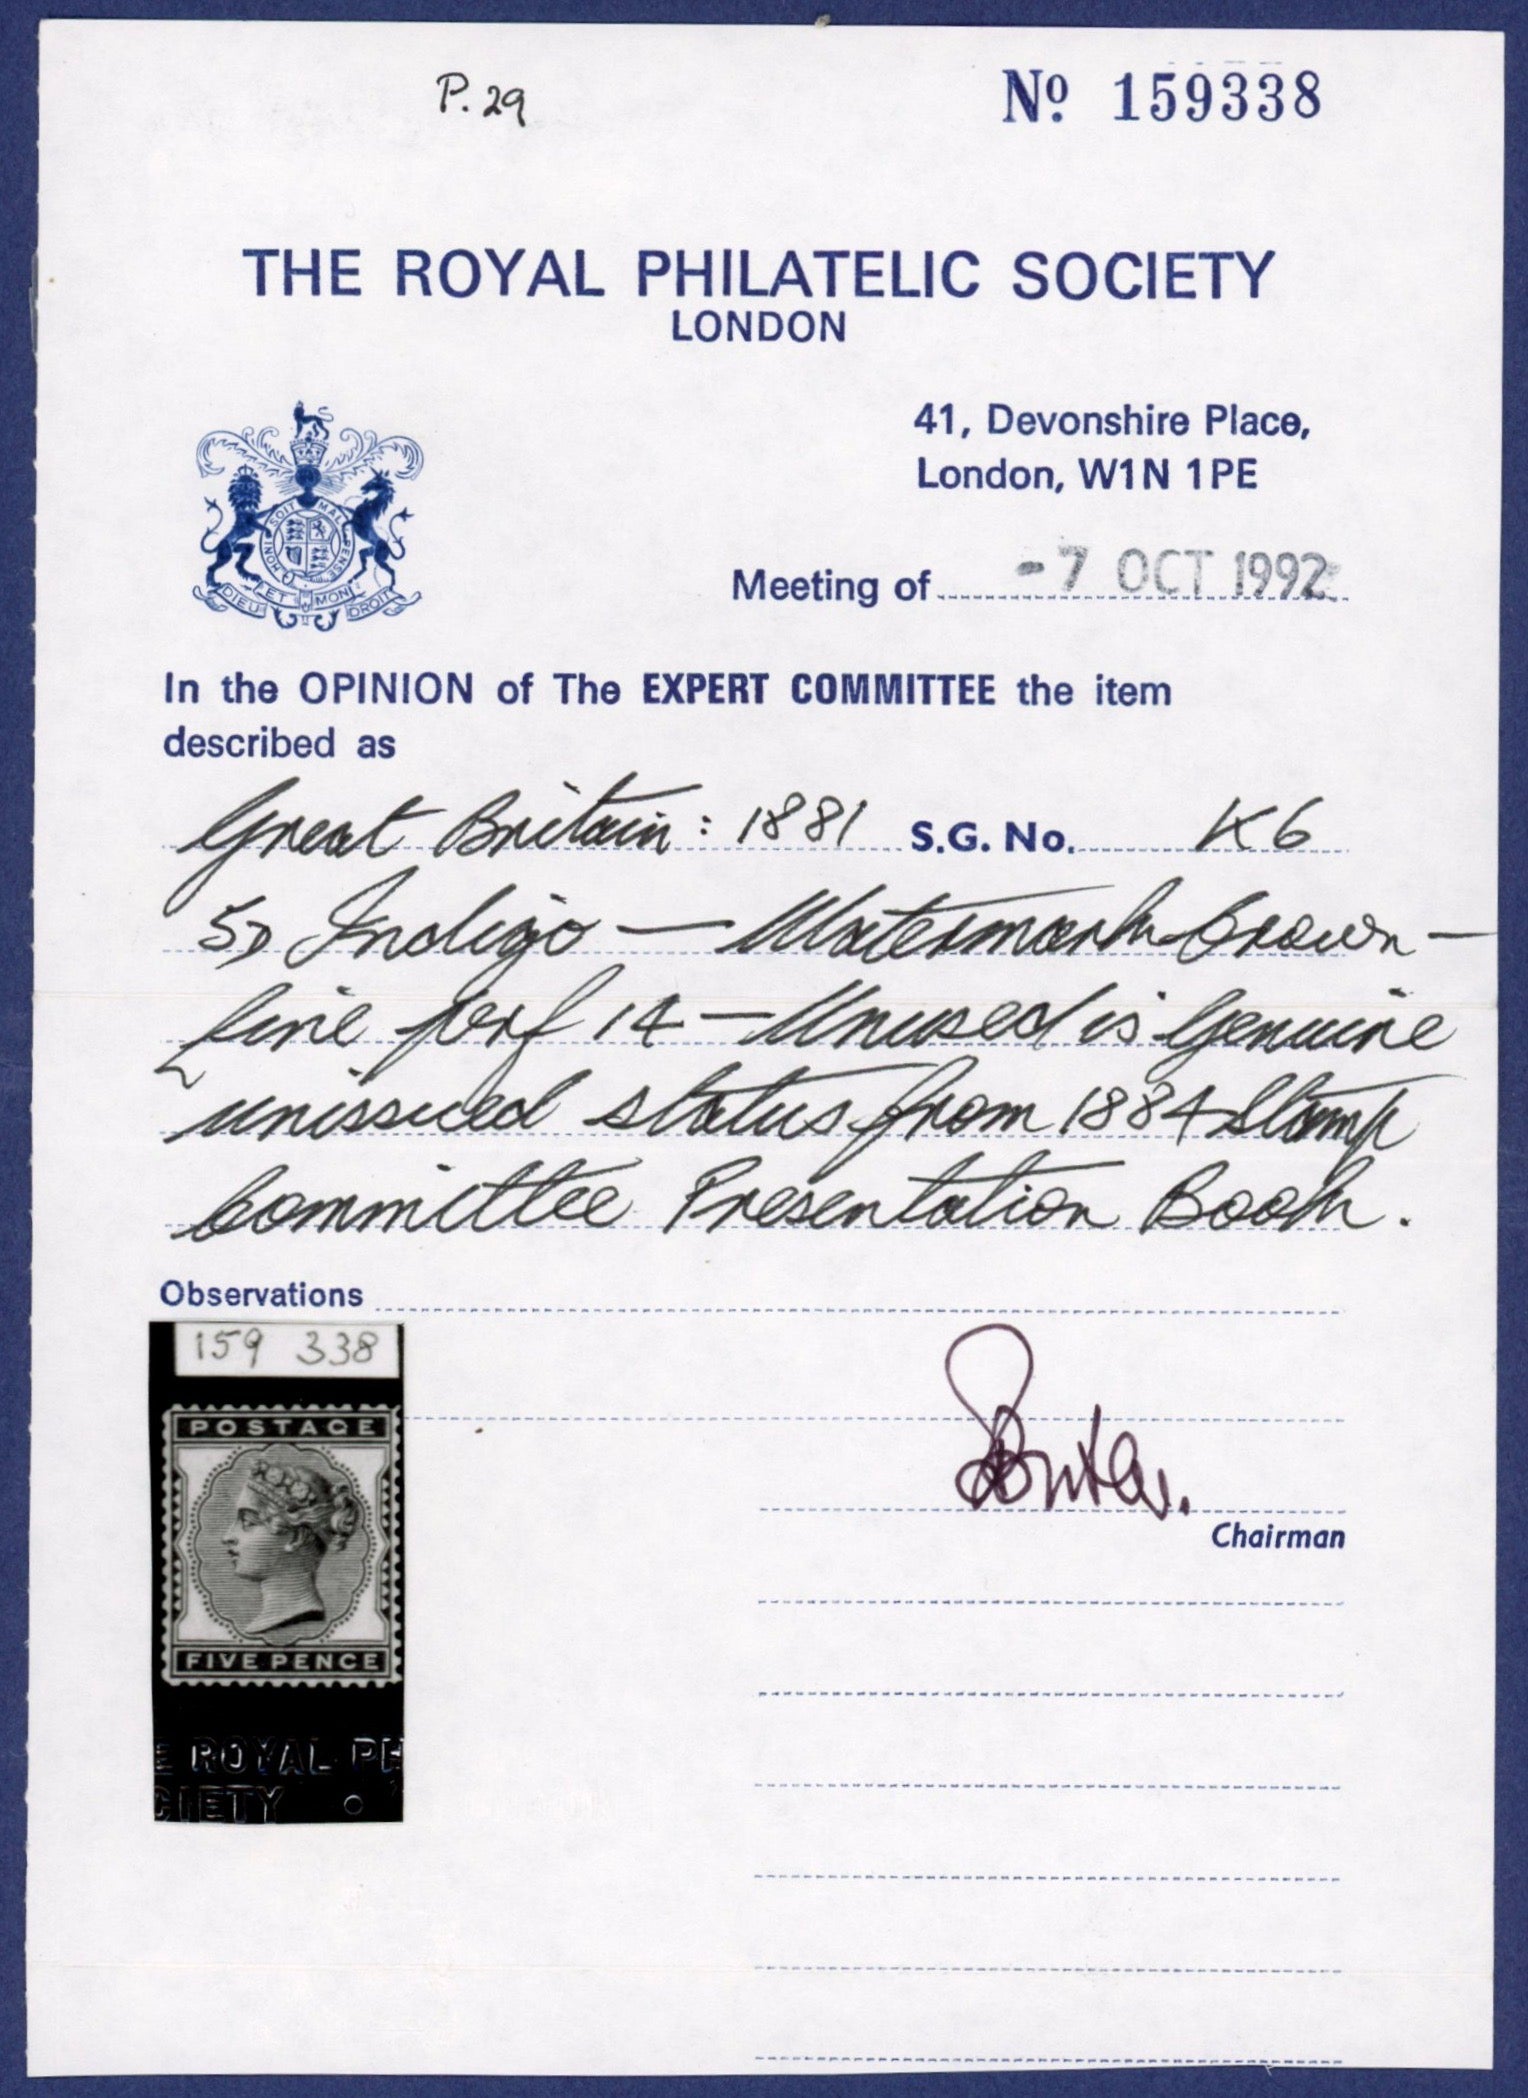 P. 29
Nº 159338
THE ROYAL PHILATELIC SOCIETY
LONDON
41, Devonshire Place,
London, W1N 1PE
HONI SOIT MAL PENSE
DIEU ET MON DROIT
Meeting of -7 OCT 1992
In the OPINION of The EXPERT COMMITTEE the item
described as
Great Britain: 1881 S.G. No. K6
5D Indigo — Watermark Crown —
fine perf 14 — Unused is Genuine
unissued status from 1884 Stamp
Committee Presentation Book.
Observations
159 338
POSTAGE
FIVE PENCE
E ROYAL PH
CIETY
Chairman